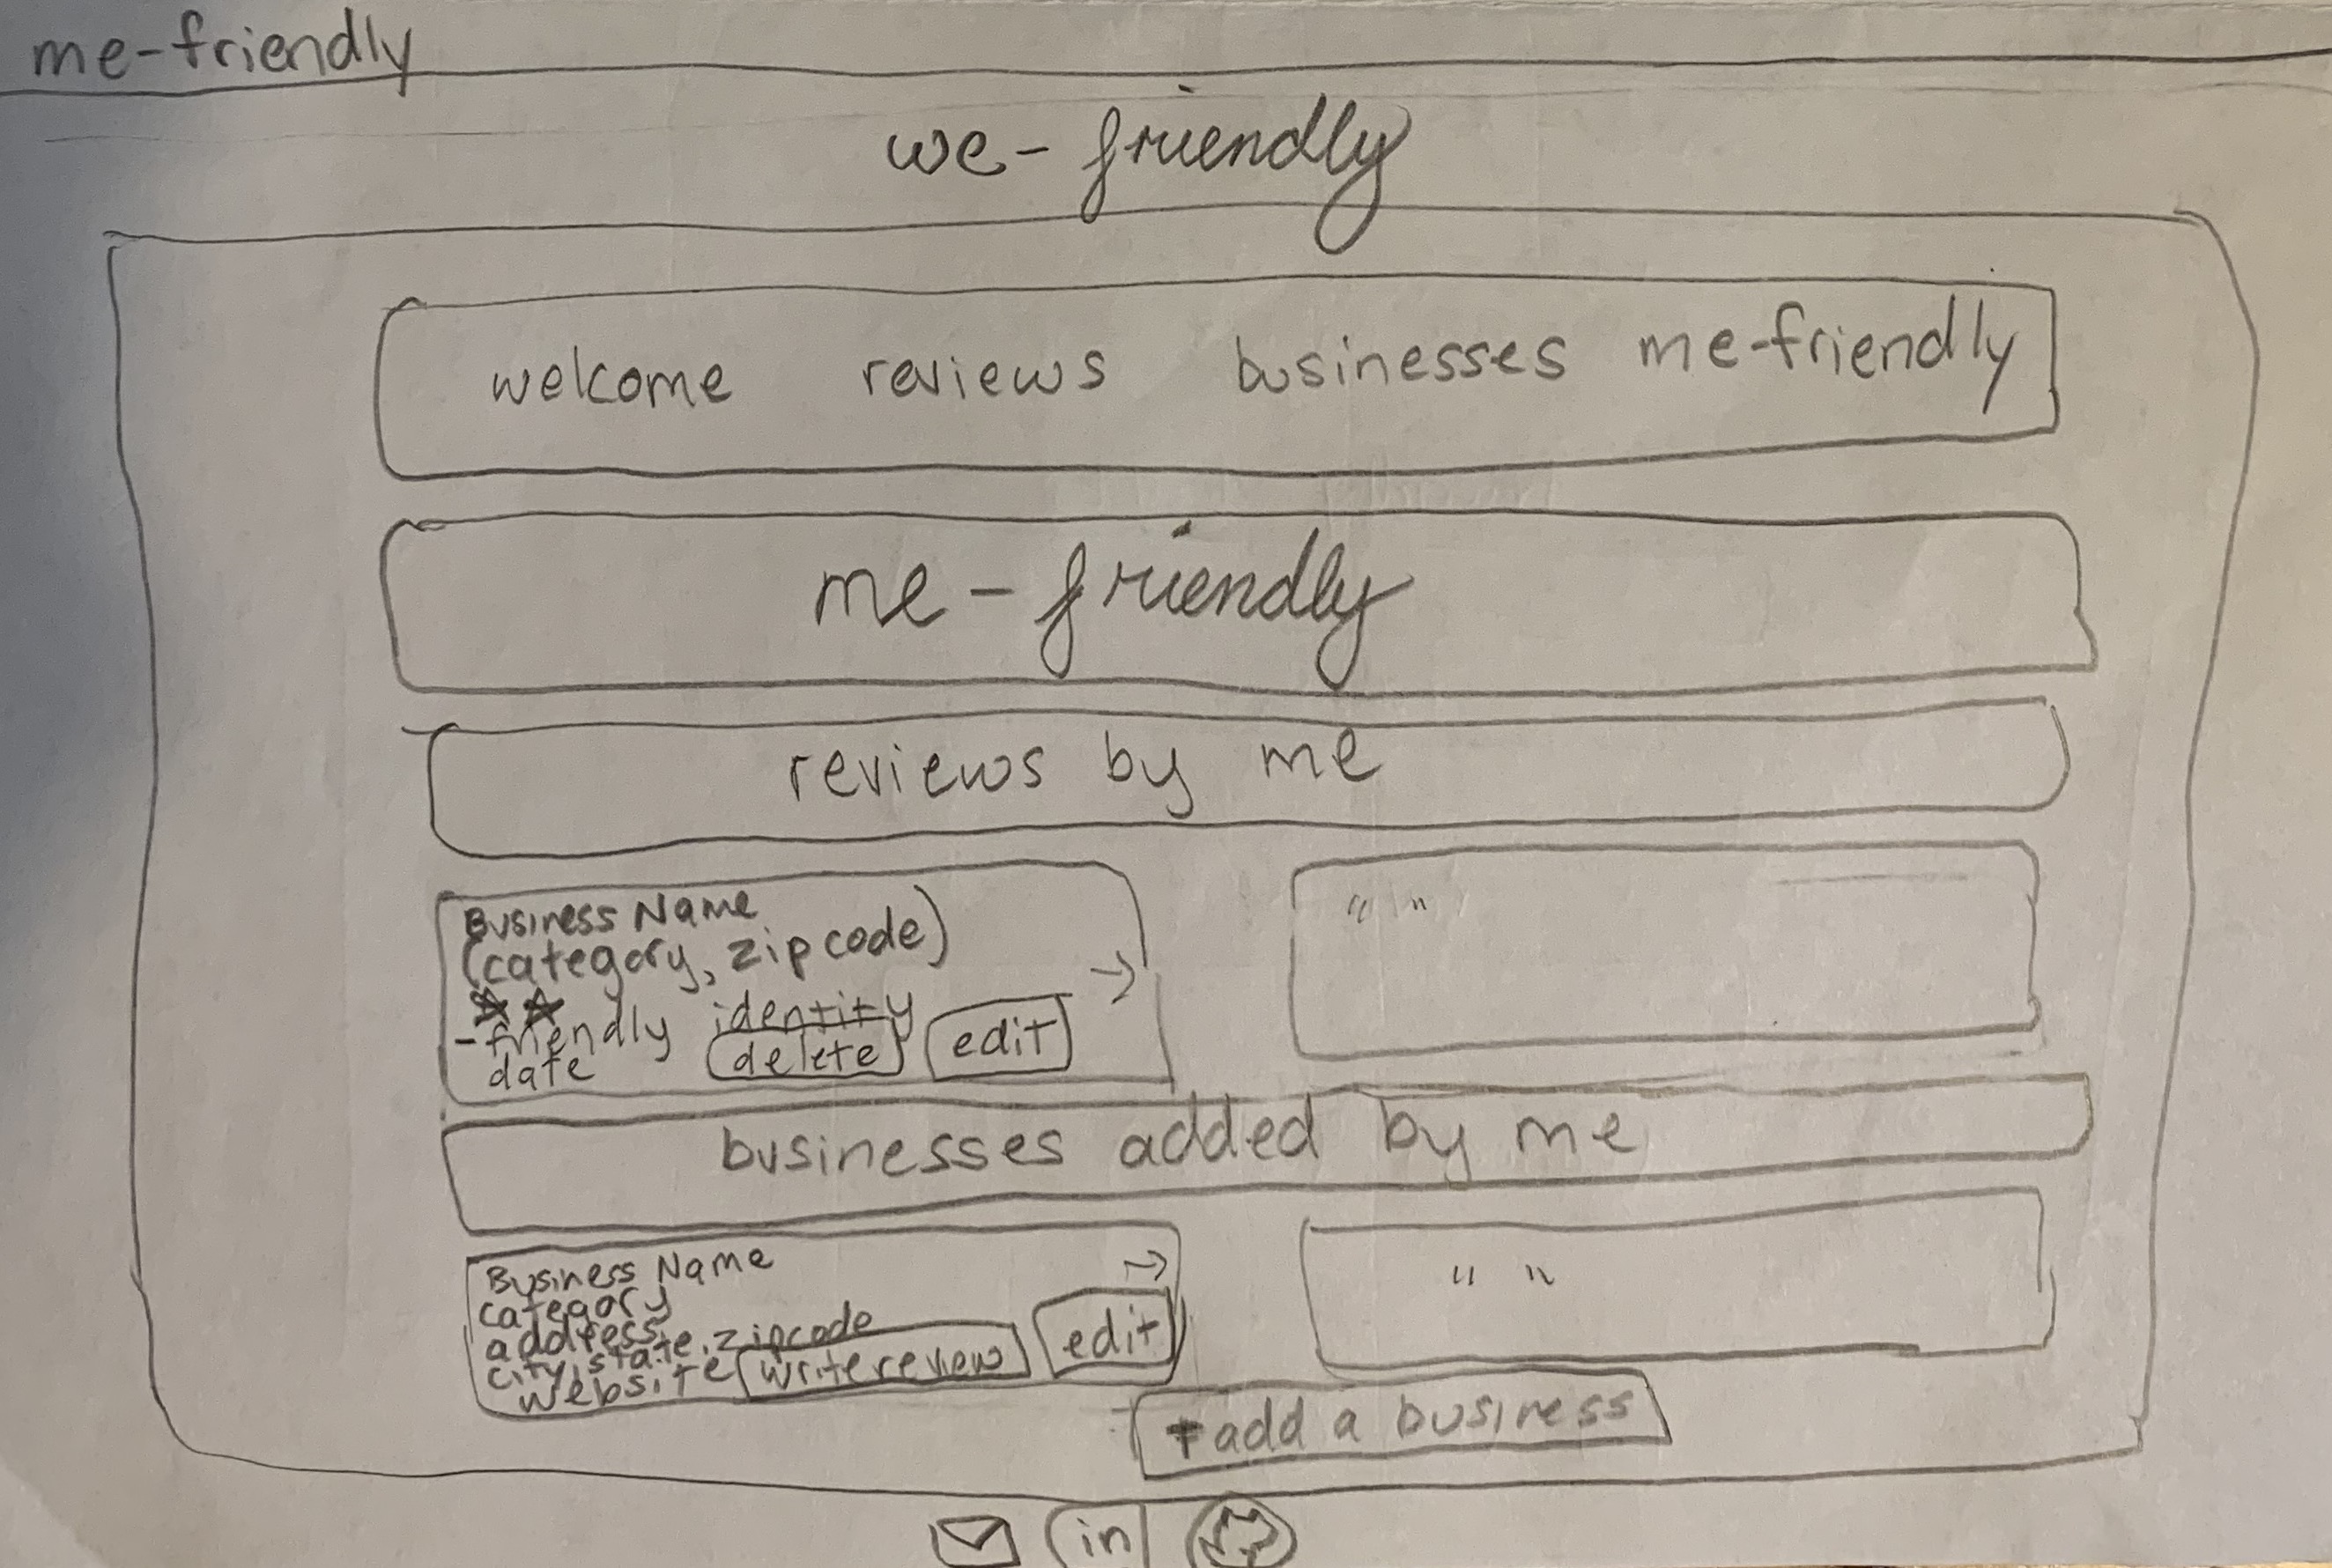 me-friendly
we-friendly
welcome reviews businesses me-friendly
me-friendly
reviews by me
Business Name
(category, zip code)
-friendly identity
date delete edit
" "
businesses added by me
Business Name
category
address
city, state, zipcode
website write review edit
" "
+ add a business
in